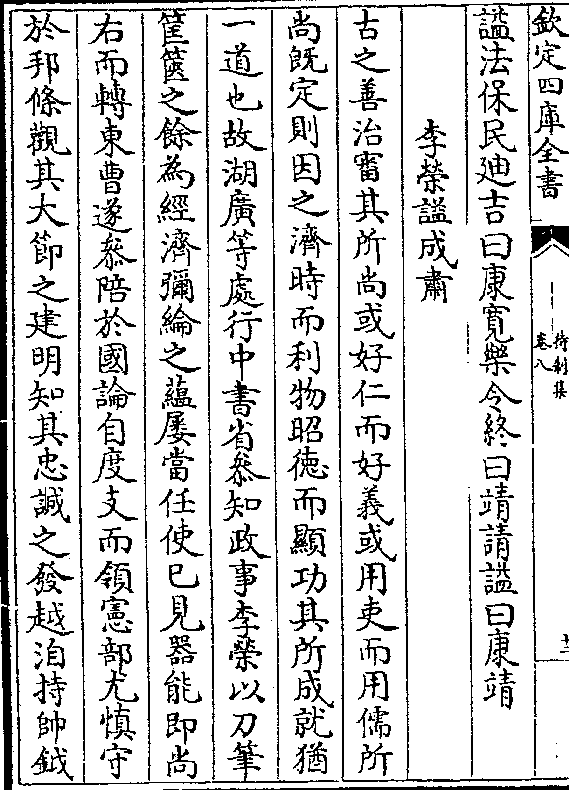 欽定四庫全書
待制集
卷八
諡法保民廸吉曰康寛樂令終曰靖請諡曰康靖
李榮諡成肅
古之善治審其所尚或好仁而好義或用吏而用儒所
尚既定則因之濟時而利物昭徳而顯功其所成就猶
一道也故湖廣等處行中書省叅知政事李榮以刀筆
筐篋之餘為經濟彌綸之蘊屢當任使已見器能即尚
右而轉東曹遂叅陪於國論自度支而領憲部尤慎守
於邦條觀其大節之建明知其忠誠之發越洎持帥鉞